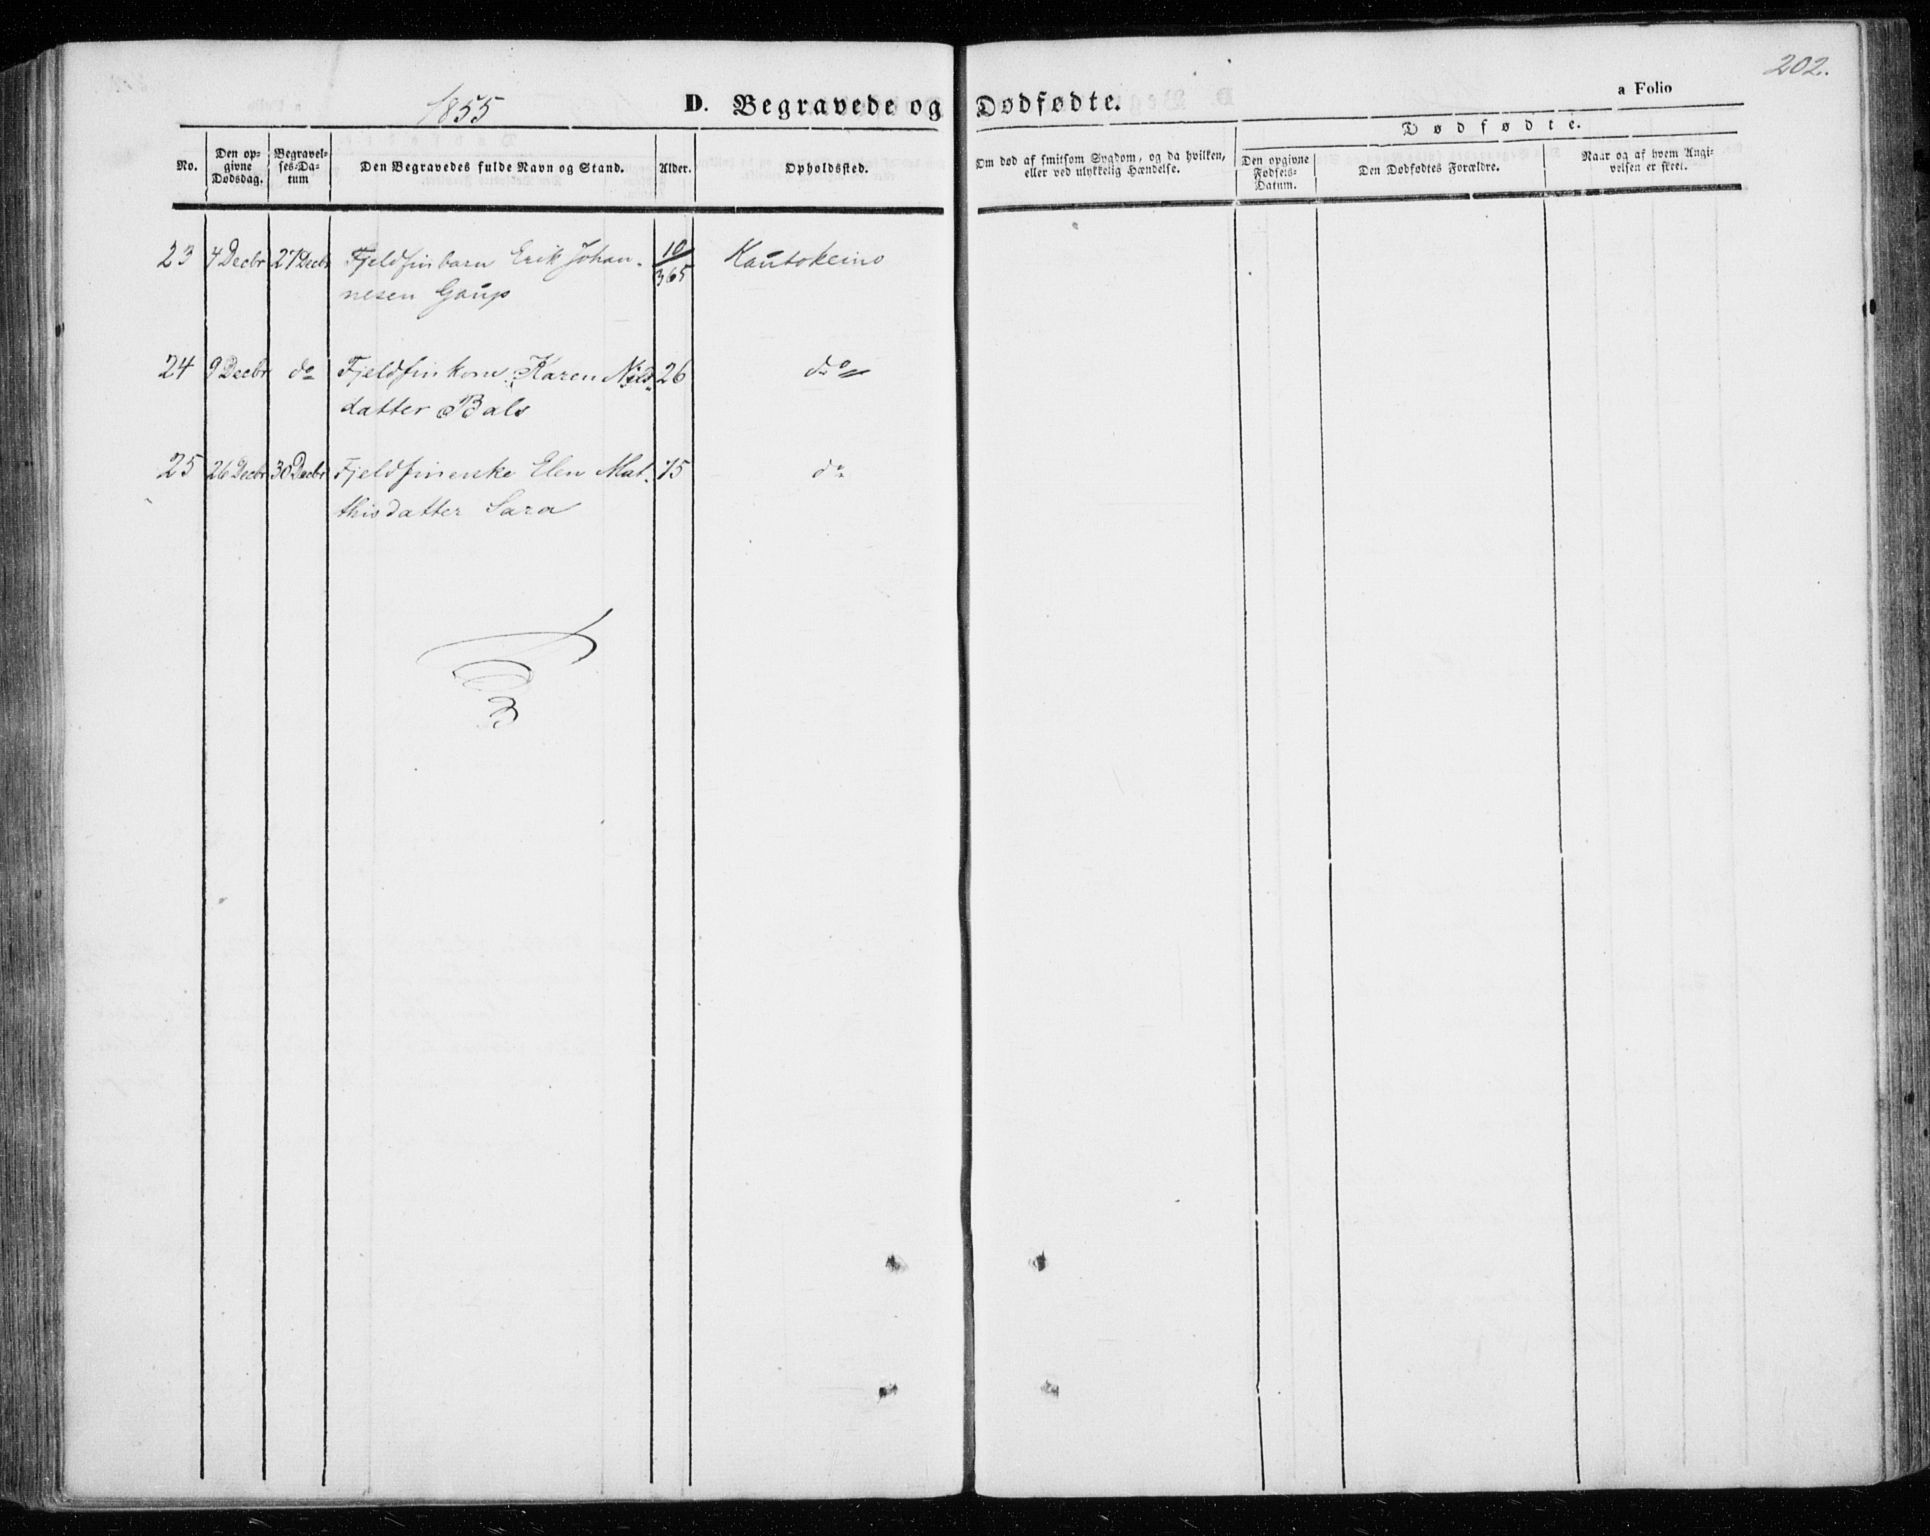 202.
1855
D. Begravede og Dødfødte.
a Folio
Dødfødte.
No.
Den op-
givne
Dødsdag.
Begravel-
ses-Da-
tum
Den Begravedes fulde Navn og Stand.
Alder.
Opholdssted.
Om død af smitsom Sygdom, og da hvilken,
eller ved ulykkelig Hændelse.
Den opgivne
Fødsels-
Datum.
Den Dødfødtes Forældre.
Naar og af hvem Angi-
velsen er skeet.
23 4 Decbr 27 Decbr Fjeldfinbarn Erik Johan- 10/365 Kautokeino
nesen Gaup
24 9 Decbr do Fjeldfinkone Karen Nils- 26 do
datter Bals
25 26 Decbr 30 Decbr Fjeldfinerske Elen Mat- 75 do
thisdatter Sara